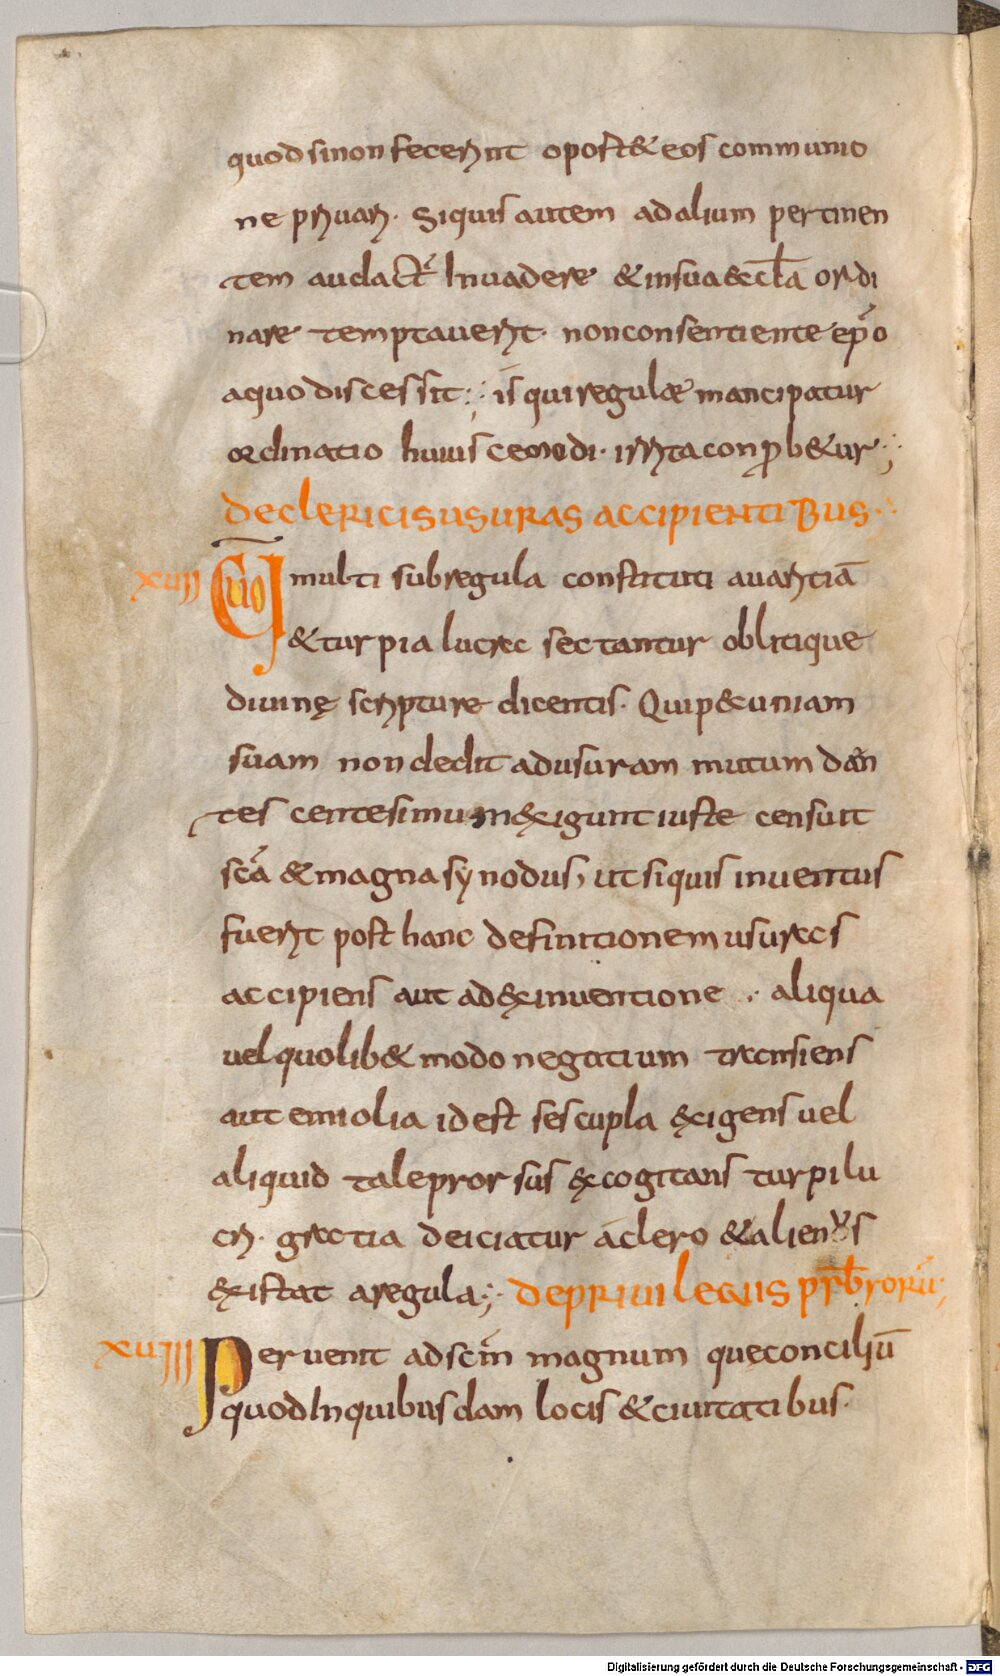 quod si non fecerint oport& eos communio
ne privari. Si quis autem ad alium pertinen
tem audacter Invadere & in sua eccła ordi
nare temptaverit. non consentiente ep̄o
a quo discessit; is qui regulae mancipatur
ordinatio huius cemodi. irrita conprob&ur;
DE CLERICIS USURAS ACCIPIENTIBUS
XVII Quō multi sub regula constituti avaritiā
& turpia lucra sectantur oblitique
divinę scripture dicentis. Qui pecuniam
suam non dedit ad usuram mutum dan
tes centesimum exigunt iuste censuit
scā & magna synodus, ut si quis inventus
fuerit post hanc definitionem usuras
accipiens aut ad exinventione aliqua
vel quolib& modo negatium transiens
aut emiolia id est sescupla exigens vel
aliquid tale prorsus excogitans turpi lu
cri. gratia deiciatur a clero & alienus
existat a regula; DE PRIVILEGIIS PRB̄RORŪ;
XVIII Pervenit ad scm̄ magnum quę conciliū
quod In quibusdam locis & civitatibus.
Digitalisierung gefördert durch die Deutsche Forschungsgemeinschaft - DFG